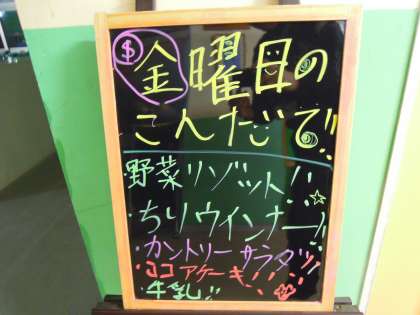 $ 金曜日の
こんだて
野菜リゾット!!
ちりウインナー!!
カントリーサラダッ!
ココアケーキ!!
牛乳!!